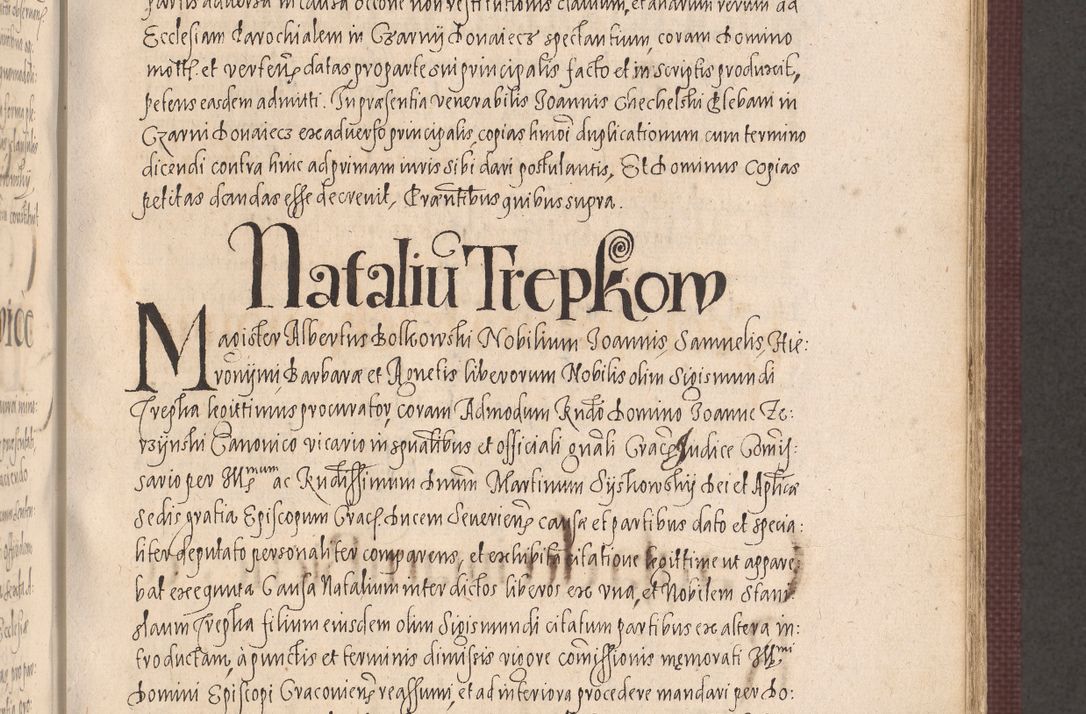 partis adversa in causa occõne non restitutionis clavium, et aliarum rerum ad
Ecclesiam Parochialem in Czarnij Donaiecz spectantium, coram Domino
mõtt. et versent datas, pro parte sui principalis facto et in scriptis produxit,
petens easdem admitti. In præsentia venerabilis Joannis Chechelski Plebani in
Czarni Donaiecz ex adverso principalis, copias hmõi duplicationum cum termino
dicendi contra hinc ad primam iuris sibi dari postulantis, Et Dominus Copias
petitas dandas esse decrevit, Præntibus quibus supra.
Nataliũ Trepkow
Magister Albertus Bolkowski Nobilium Joannis, Samuelis, Hie:
ronijmi Barbaræ et Agnetis liberorum Nobilis olim Sigismundi
Trepka legittimus procurator, coram Admodum Rndo Domino Joanne Ze:
rzijnski Canonico vicario in spũalibus et officiali gñali Crac. Judice Comis:
sario per Illmum ac Rndissimum Dnum Martinum Sijskowskij Dei et Aplicæ
Sedis gratia Episcopum Crac. Ducem Severien. causæ et partibus dato et specia:
liter deputato personaliter comparens, et exhibita citatione legittime ut appare:
bat exequuta Causa Natalium inter dictos liberos ex una, et Nobilem Stani:
slaum Trepka filium eiusdem olim Sigismundi citatum partibus ex altera in:
troductam, à punctis et terminis dimissis vigore comissionis memorati Illmi
Domini Episcopi Cracovien. reassumi, et ad interiora procedere mandari per Do: